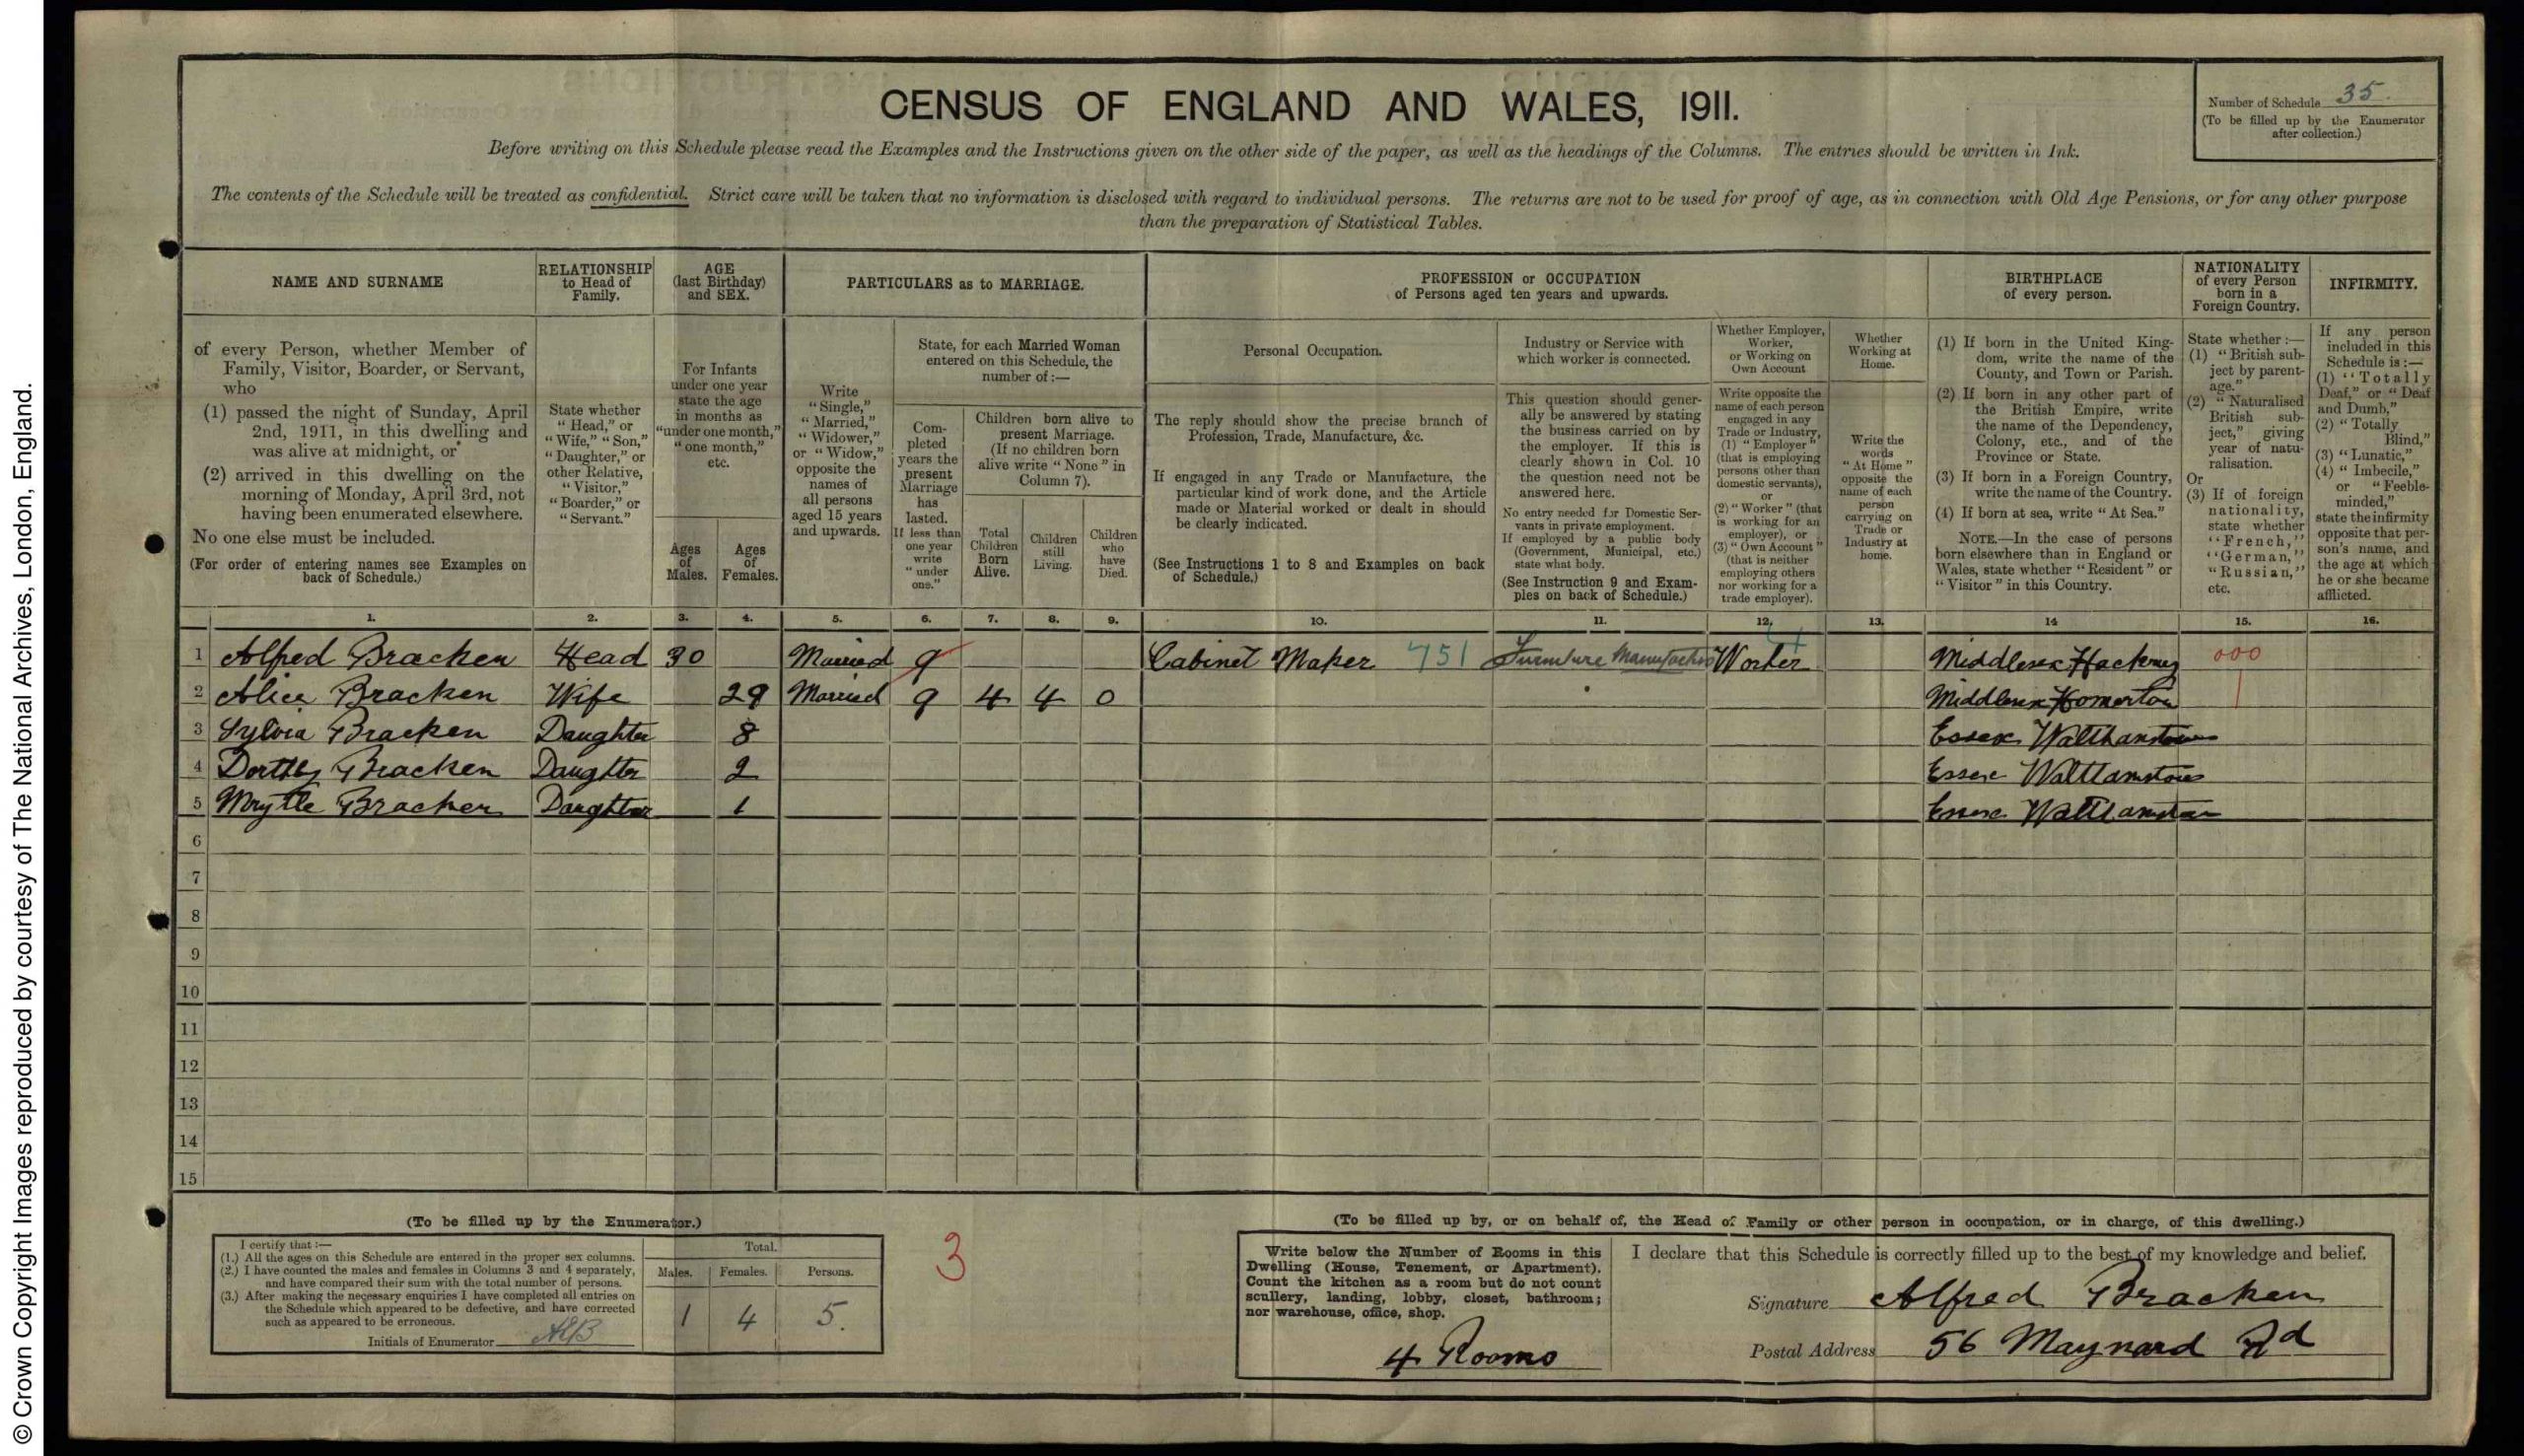 © Crown Copyright Images reproduced by courtesy of The National Archives, London, England.
CENSUS OF ENGLAND AND WALES, 1911.
Number of Schedule 35.
(To be filled up by the Enumerator
after collection.)
Before writing on this Schedule please read the Examples and the Instructions given on the other side of the paper, as well as the headings of the Columns. The entries should be written in Ink.
The contents of the Schedule will be treated as confidential. Strict care will be taken that no information is disclosed with regard to individual persons. The returns are not to be used for proof of age, as in connection with Old Age Pensions, or for any other purpose
than the preparation of Statistical Tables.
NAME AND SURNAME
of every Person, whether Member of
Family, Visitor, Boarder, or Servant,
who
(1) passed the night of Sunday, April
2nd, 1911, in this dwelling and
was alive at midnight, or
(2) arrived in this dwelling on the
morning of Monday, April 3rd, not
having been enumerated elsewhere.
No one else must be included.
(For order of entering names see Examples on
back of Schedule.)
RELATIONSHIP
to Head of
Family.
State whether
"Head," or
"Wife," "Son,"
"Daughter," or
other Relative,
"Visitor,"
"Boarder," or
"Servant."
AGE
(last Birthday)
and SEX.
For Infants
under one year
state the age
in months as
"under one month,"
"one month,"
etc.
Ages
of
Males.
Ages
of
Females.
PARTICULARS as to MARRIAGE.
Write
"Single,"
"Married,"
"Widower,"
or "Widow,"
opposite the
names of
all persons
aged 15 years
and upwards.
State, for each Married Woman
entered on this Schedule, the
number of:—
Com-
pleted
years the
present
Marriage
has
lasted.
If less than
one year
write
"under
one."
Children born alive to
present Marriage.
(If no children born
alive write "None" in
Column 7).
Total
Children
Born
Alive.
Children
still
Living.
Children
who
have
Died.
PROFESSION or OCCUPATION
of Persons aged ten years and upwards.
Personal Occupation.
The reply should show the precise branch of
Profession, Trade, Manufacture, &c.
If engaged in any Trade or Manufacture, the
particular kind of work done, and the Article
made or Material worked or dealt in should
be clearly indicated.
(See Instructions 1 to 8 and Examples on back
of Schedule.)
Industry or Service with
which worker is connected.
This question should gener-
ally be answered by stating
the business carried on by
the employer. If this is
clearly shown in Col. 10
the question need not be
answered here.
No entry needed for Domestic Ser-
vants in private employment.
If employed by a public body
(Government, Municipal, etc.)
state what body.
(See Instruction 9 and Exam-
ples on back of Schedule.)
Whether Employer,
Worker,
or Working on
Own Account
Write opposite the
name of each person
engaged in any
Trade or Industry,
(1) "Employer"
(that is employing
persons other than
domestic servants),
or
(2) "Worker" (that
is working for an
employer), or
(3) "Own Account"
(that is neither
employing others
nor working for a
trade employer).
Whether
Working at
Home.
Write the
words
"At Home"
opposite the
name of each
person
carrying on
Trade or
Industry at
home.
BIRTHPLACE
of every person.
(1) If born in the United King-
dom, write the name of the
County, and Town or Parish.
(2) If born in any other part of
the British Empire, write
the name of the Dependency,
Colony, etc., and of the
Province or State.
(3) If born in a Foreign Country,
write the name of the Country.
(4) If born at sea, write "At Sea."
NOTE.—In the case of persons
born elsewhere than in England or
Wales, state whether "Resident" or
"Visitor" in this Country.
NATIONALITY
of every Person
born in a
Foreign Country.
State whether:—
(1) "British sub-
ject by parent-
age."
(2) "Naturalised
British sub-
ject," giving
year of natu-
ralisation.
Or
(3) If of foreign
nationality,
state whether
"French,"
"German,"
"Russian,"
etc.
INFIRMITY.
If any person
included in this
Schedule is:—
(1) "Totally
Deaf," or "Deaf
and Dumb,"
(2) "Totally
Blind,"
(3) "Lunatic,"
(4) "Imbecile,"
or "Feeble-
minded,"
state the infirmity
opposite that per-
son's name, and
the age at which
he or she became
afflicted.
1. 2. 3. 4. 5. 6. 7. 8. 9. 10. 11. 12. 13. 14 15. 16.
1 Alfred Bracken Head 30 Married 9 Cabinet Maker 751 Furniture Worker Middlesex Hackney 000
2 Alice Bracken Wife 29 Married 9 4 4 0 Middlesex Homerton
3 Sylvia Bracken Daughter 8 Essex Walthamstow
4 Dorthy Bracken Daughter 2 Essex Walthamstow
5 Mrytle Bracken Daughter 1 Essex Walthamstow
6
7
8
9
10
11
12
13
14
15
(To be filled up by the Enumerator.)
I certify that:—
(1.) All the ages on this Schedule are entered in the proper sex columns.
(2.) I have counted the males and females in Columns 3 and 4 separately,
and have compared their sum with the total number of persons.
(3.) After making the necessary enquiries I have completed all entries on
the Schedule which appeared to be defective, and have corrected
such as appeared to be erroneous.
Initials of Enumerator
Total.
Males. Females. Persons.
1 4 5.
3
(To be filled up by, or on behalf of, the Head of Family or other person in occupation, or in charge, of this dwelling.)
Write below the Number of Rooms in this
Dwelling (House, Tenement, or Apartment).
Count the kitchen as a room but do not count
scullery, landing, lobby, closet, bathroom;
nor warehouse, office, shop.
4 Rooms
I declare that this Schedule is correctly filled up to the best of my knowledge and belief.
Signature Alfred Bracken
Postal Address 56 Maynard Rd